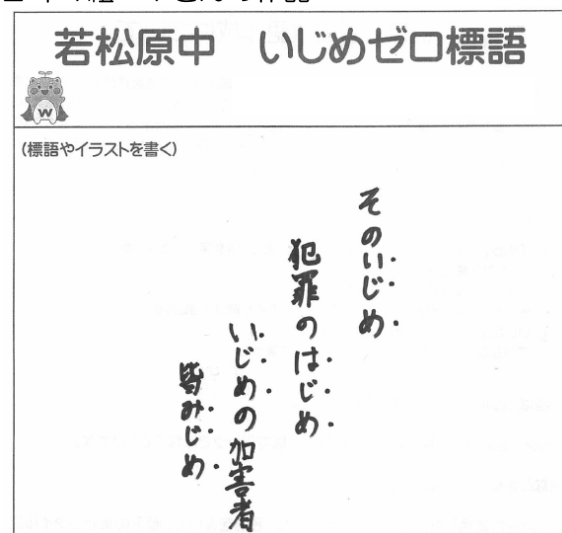 若松原中 いじめゼロ標語
W
(標語やイラストを書く)
そのいじめ
犯罪のはじめ
いじめの加害者
皆みじめ